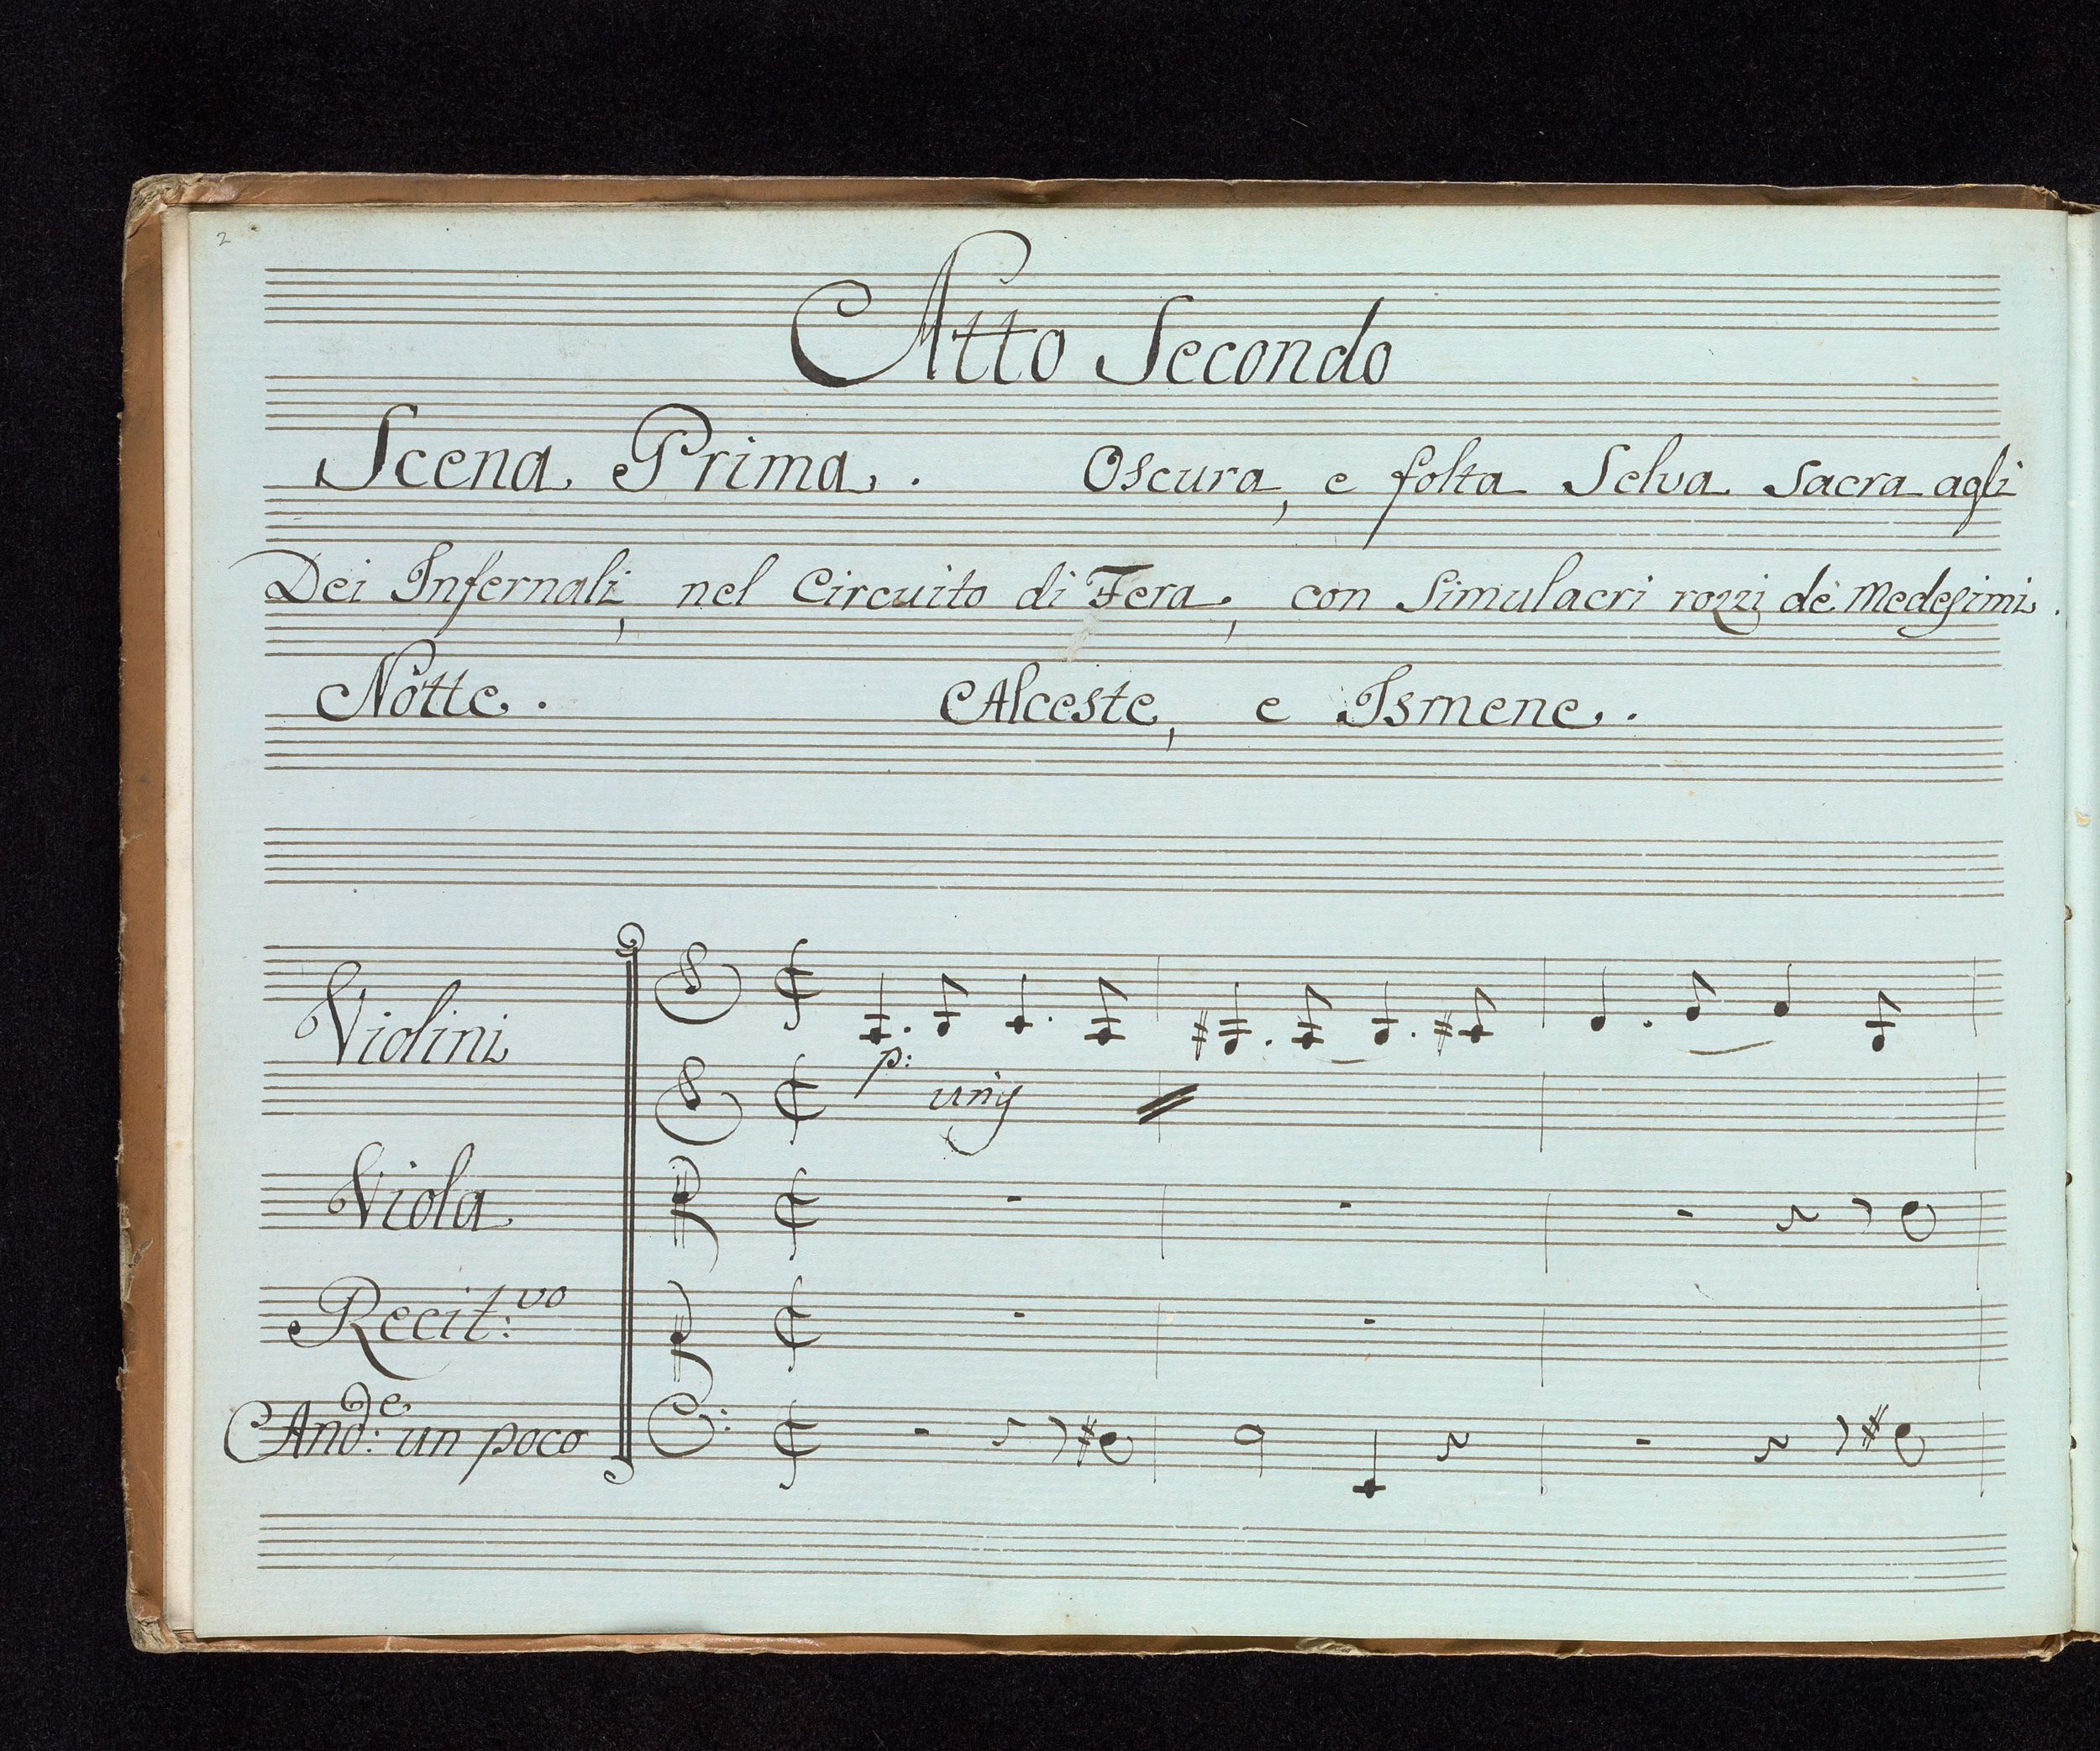 2
Atto Secondo
Scena Prima. Oscura, e folta Selva Sacra agli
Dei Infernali, nel Circuito di Fera, con Simulacri rozzi dè Medesimi.
Notte. Alceste, e Ismene.
Violini
p:
Viola
Recit:vo
And:e un poco